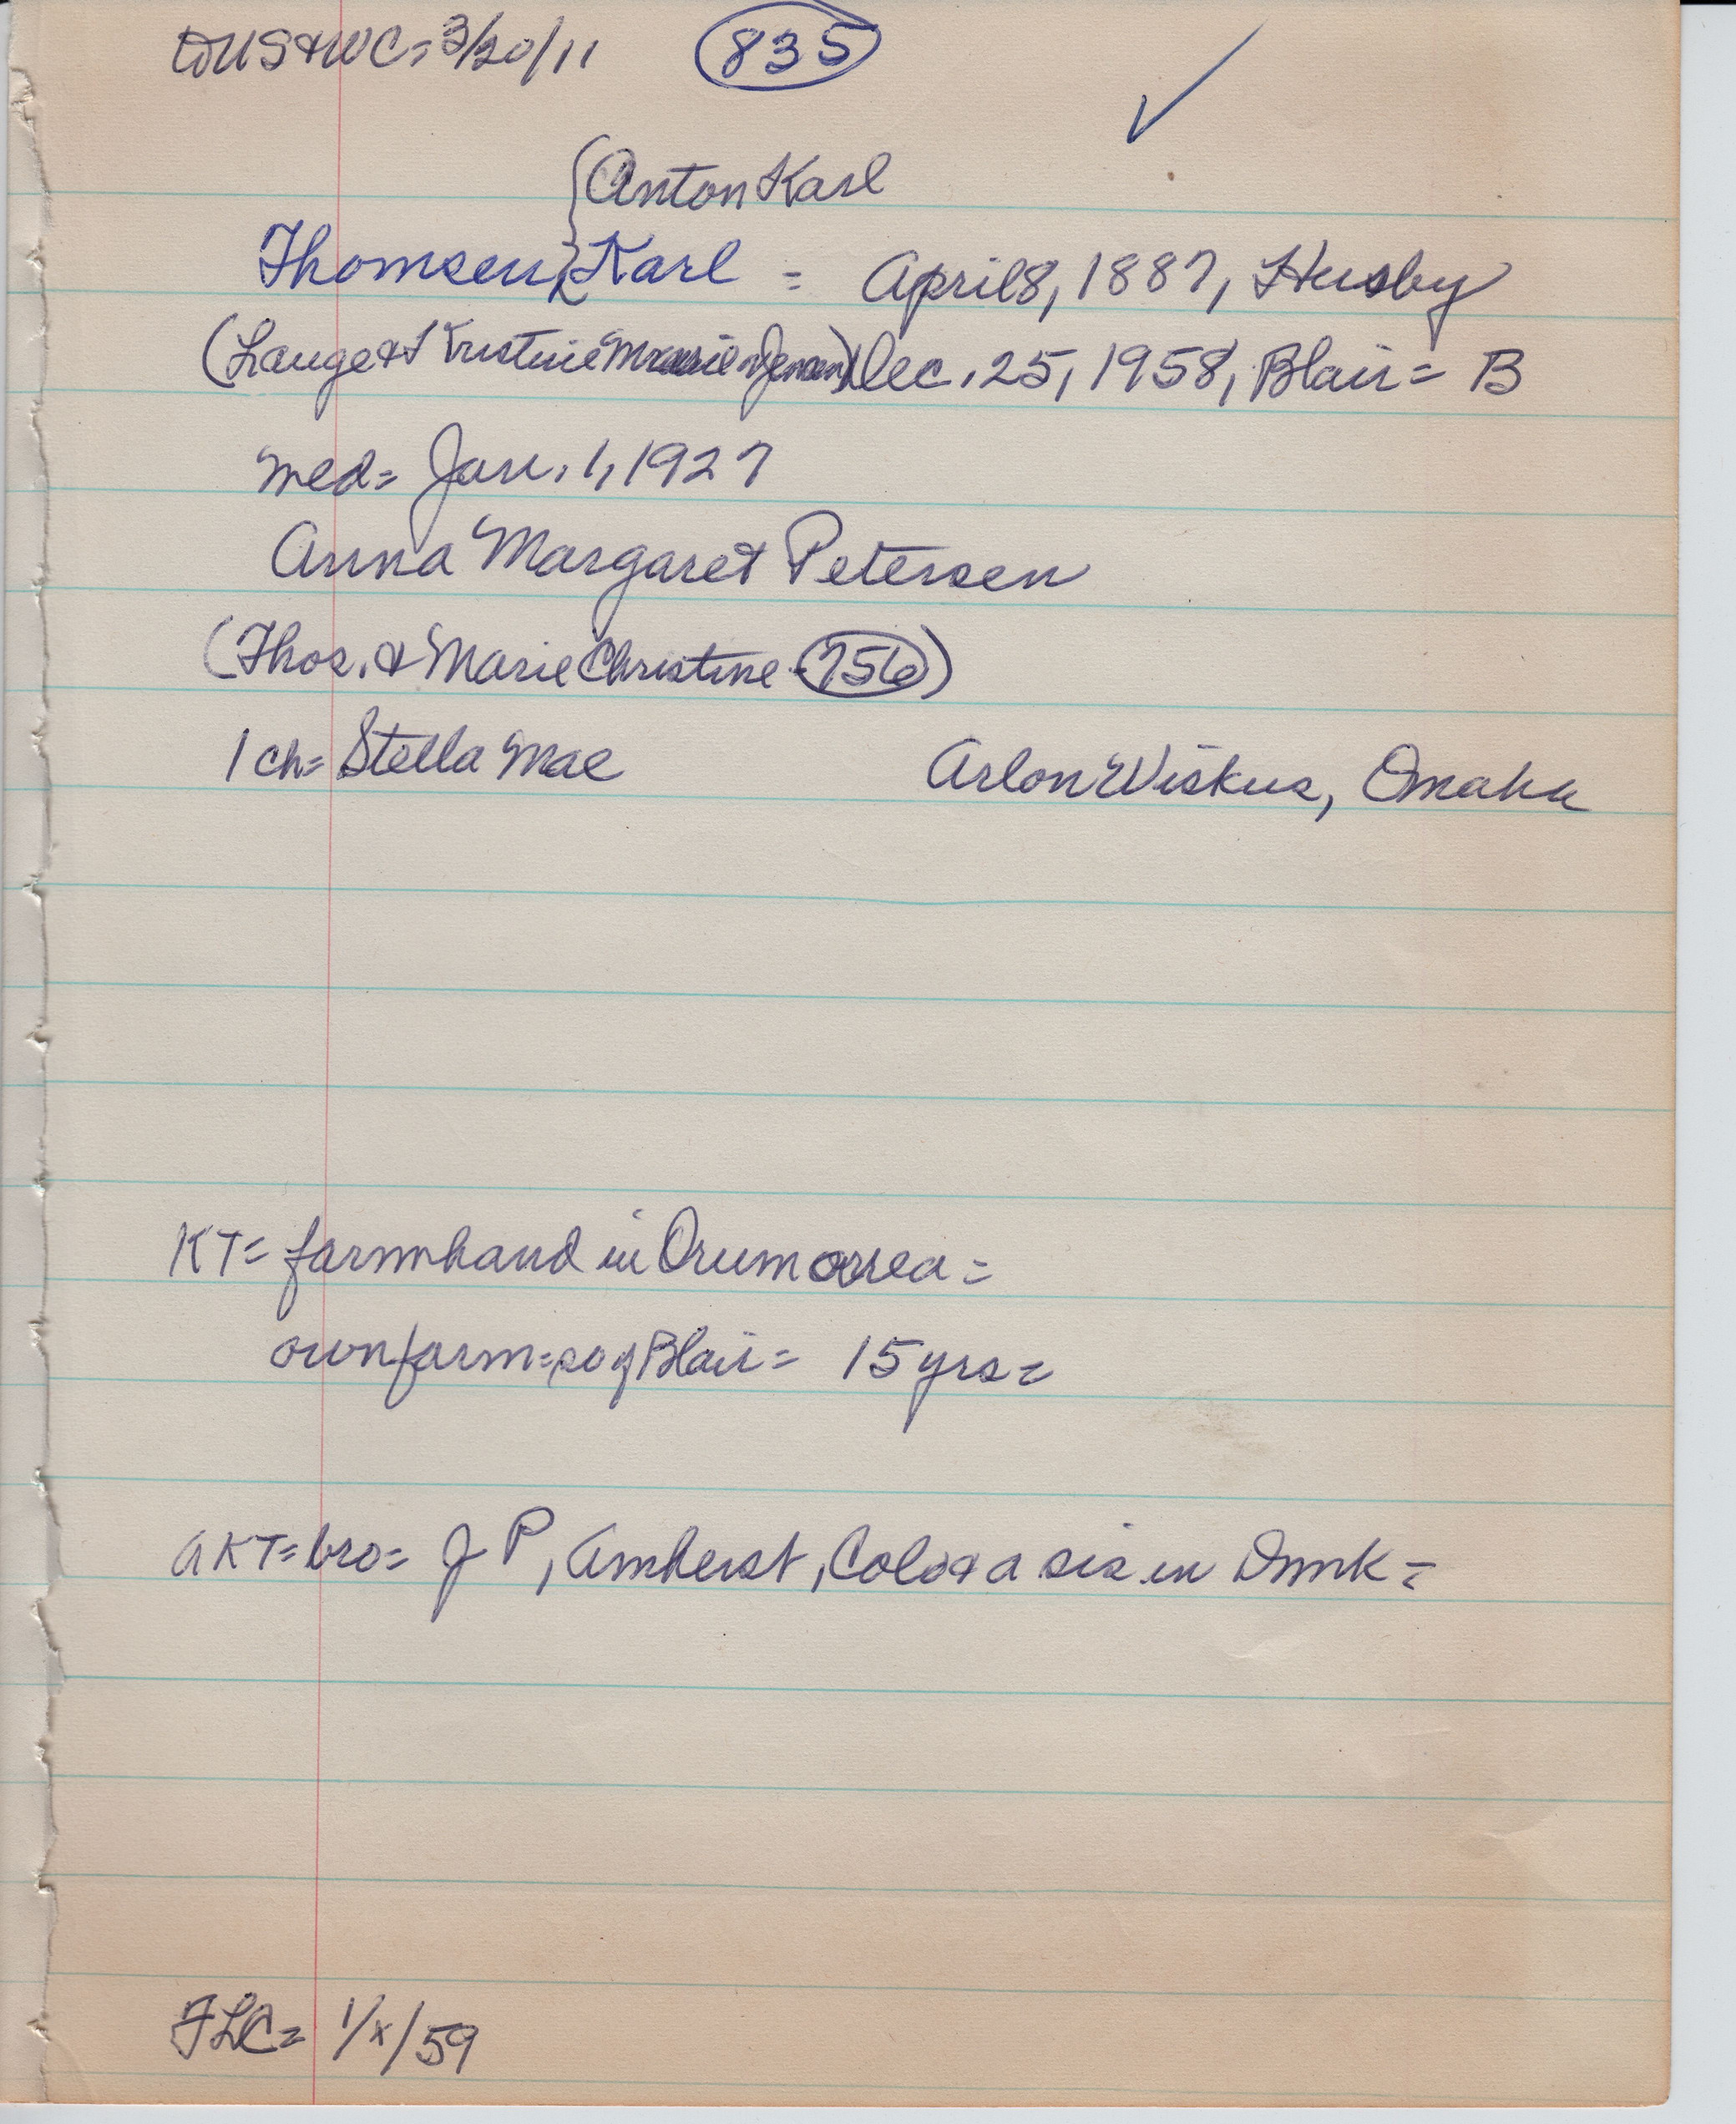 to US & WC = 3/20/11 835 ✓
{ Anton Karl
Thomsen, { Karl = April 8, 1887, Husby
(Lauge & Kristine Marie Jensen) Dec. 25, 1958, Blair = B
med = Jan. 1, 1927
Anna Margaret Petersen
(Thos. & Marie Christine 756)
1 ch = Stella Mae Arlon Wiskus, Omaha
KT = farmhand in Orum area =
own farm = so of Blair = 15 yrs =
AKT = bro = J P, Amherst, Colo & a sis in Dnmk =
FLC = 1/x/59